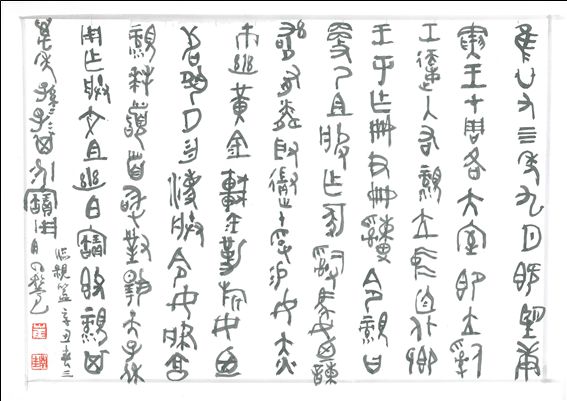 隹廿又四年九月既望庚
寅王才周各大室即立𤔲
工入右親立中廷北鄉
王乎乍冊尹冊令親曰
更乃且服乍冢𤔲馬女廼諫
訊有粦取十易女赤
巿幽黃金車金勒旂女廼
敬夙夕勿灋朕令女肇享
親拜首敢對揚天子休
用乍朕文且幽白寶簋親其
萬年孫子其永寶用
臨親簋 辛丑